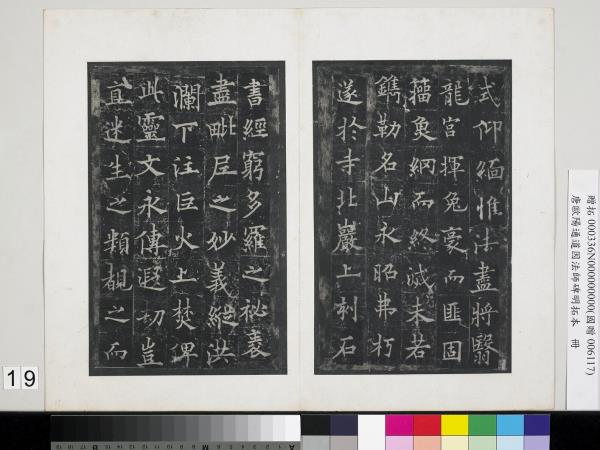 式仰緬惟法盡將翳
龍宮揮兔豪而匪固
籀奠網而終滅未若
鐫勒名山永昭弗朽
遂於寺北巖上刻石
書經窮多羅之祕袠
盡毗尼之妙義縱洪
瀾下注巨火上焚俾
此靈文永傳遐劫豈
直迷生之類覩之而
贈拓 000336N000000000(國贈 006117)
唐歐陽通道因法師碑明拓本 冊
19